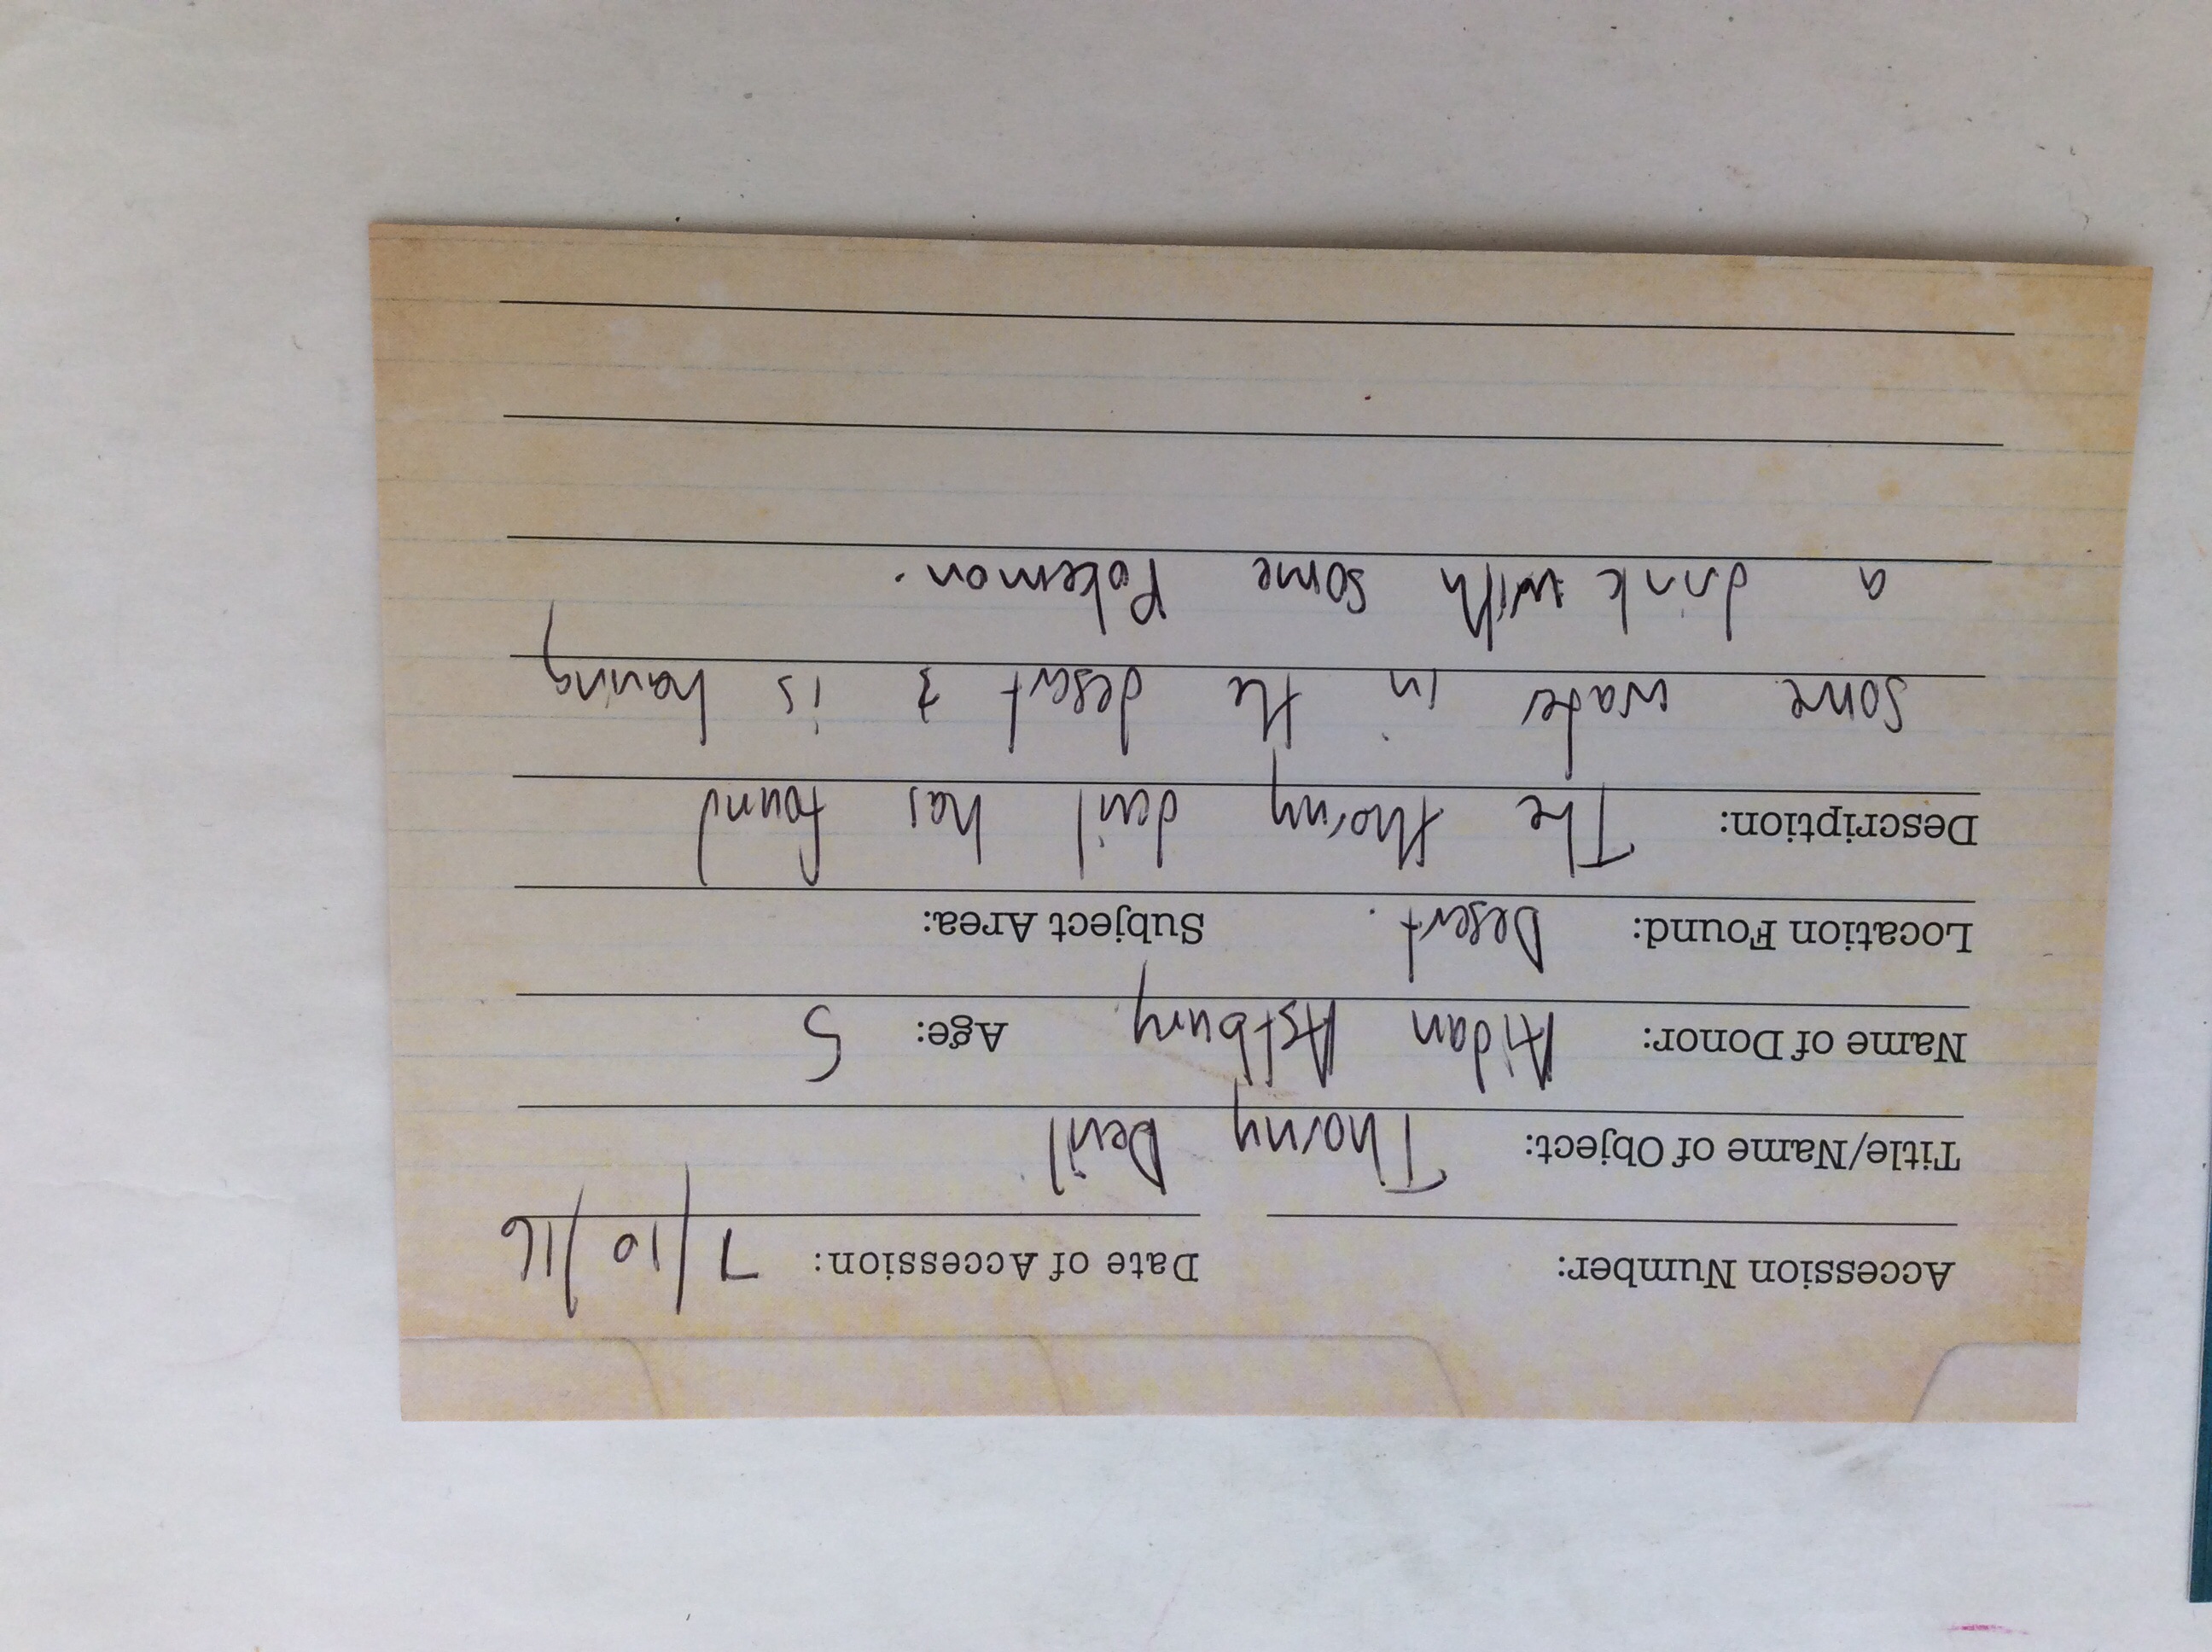 Accession Number: Date of Accession: 7/10/16
Title/Name of Object: Thorny Devil
Name of Donor: Aidan Astbury Age: 5
Location Found: Desert. Subject Area:
Description: The thorny devil has found
some water in the desert & is having
a drink with some Pokemon.